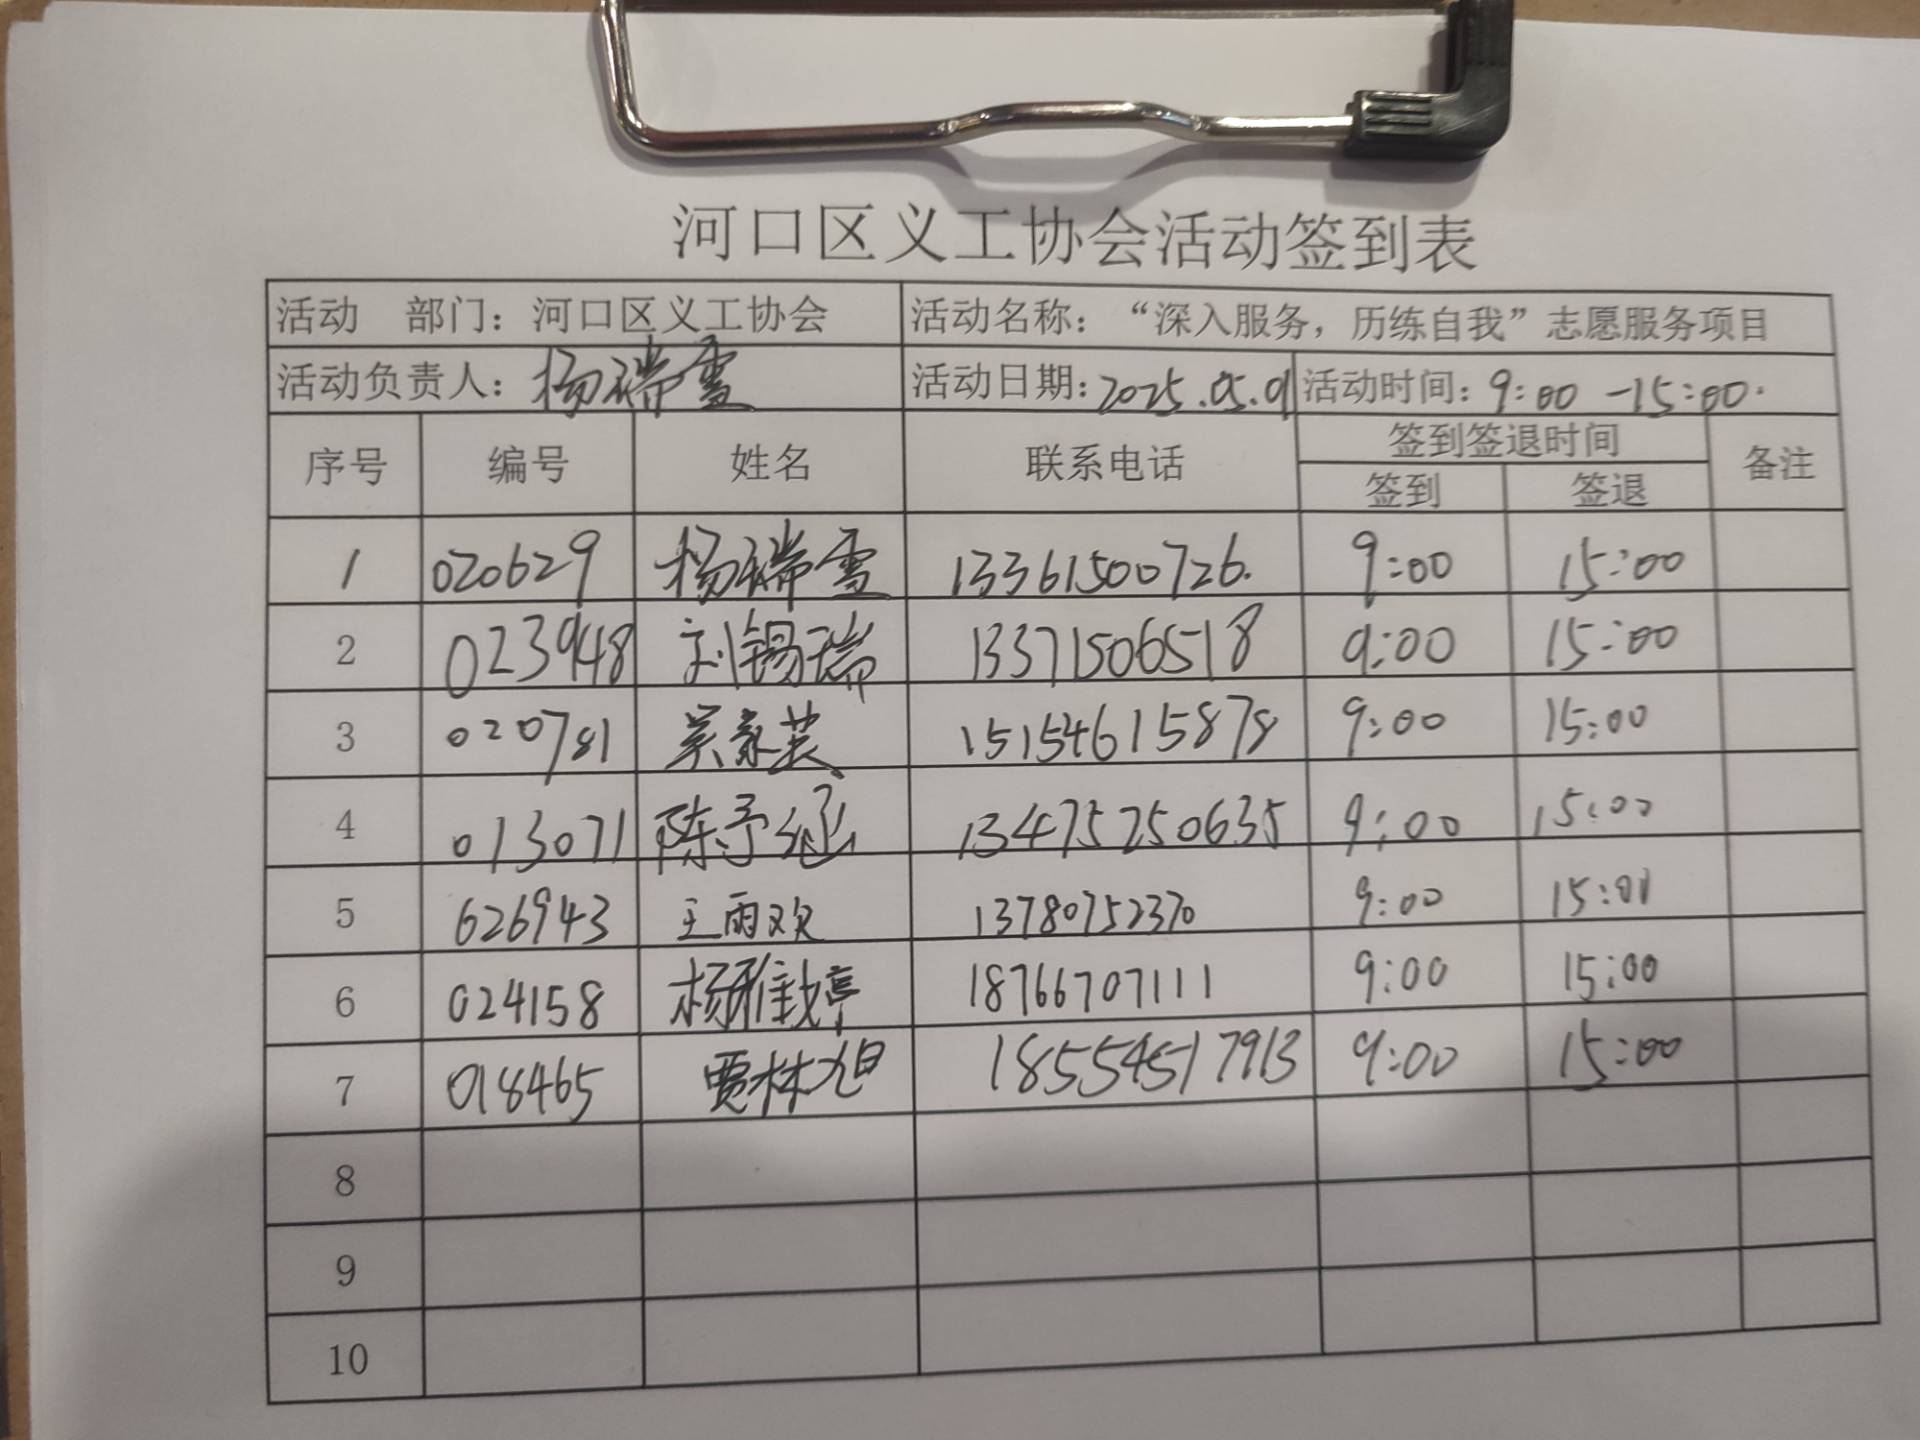 河口区义工协会活动签到表
活动 部门：河口区义工协会 活动名称：“深入服务，历练自我”志愿服务项目
活动负责人：杨瑞雪 活动日期：2025.05.01 活动时间：9:00-15:00.
序号 编号 姓名 联系电话 签到签退时间 备注
签到 签退
1 020629 杨瑞雪 13361500726. 9:00 15:00
2 023948 刘锡瑞 13371506518 9:00 15:00
3 020781 15154615878 9:00 15:00
4 013071 陈予涵 13475250635 9:00 15:00
5 626943 王雨欢 13780752370 9:00 15:01
6 024158 杨雅婷 18766707111 9:00 15:00
7 018465 贾林旭 18554517913 9:00 15:00
8
9
10